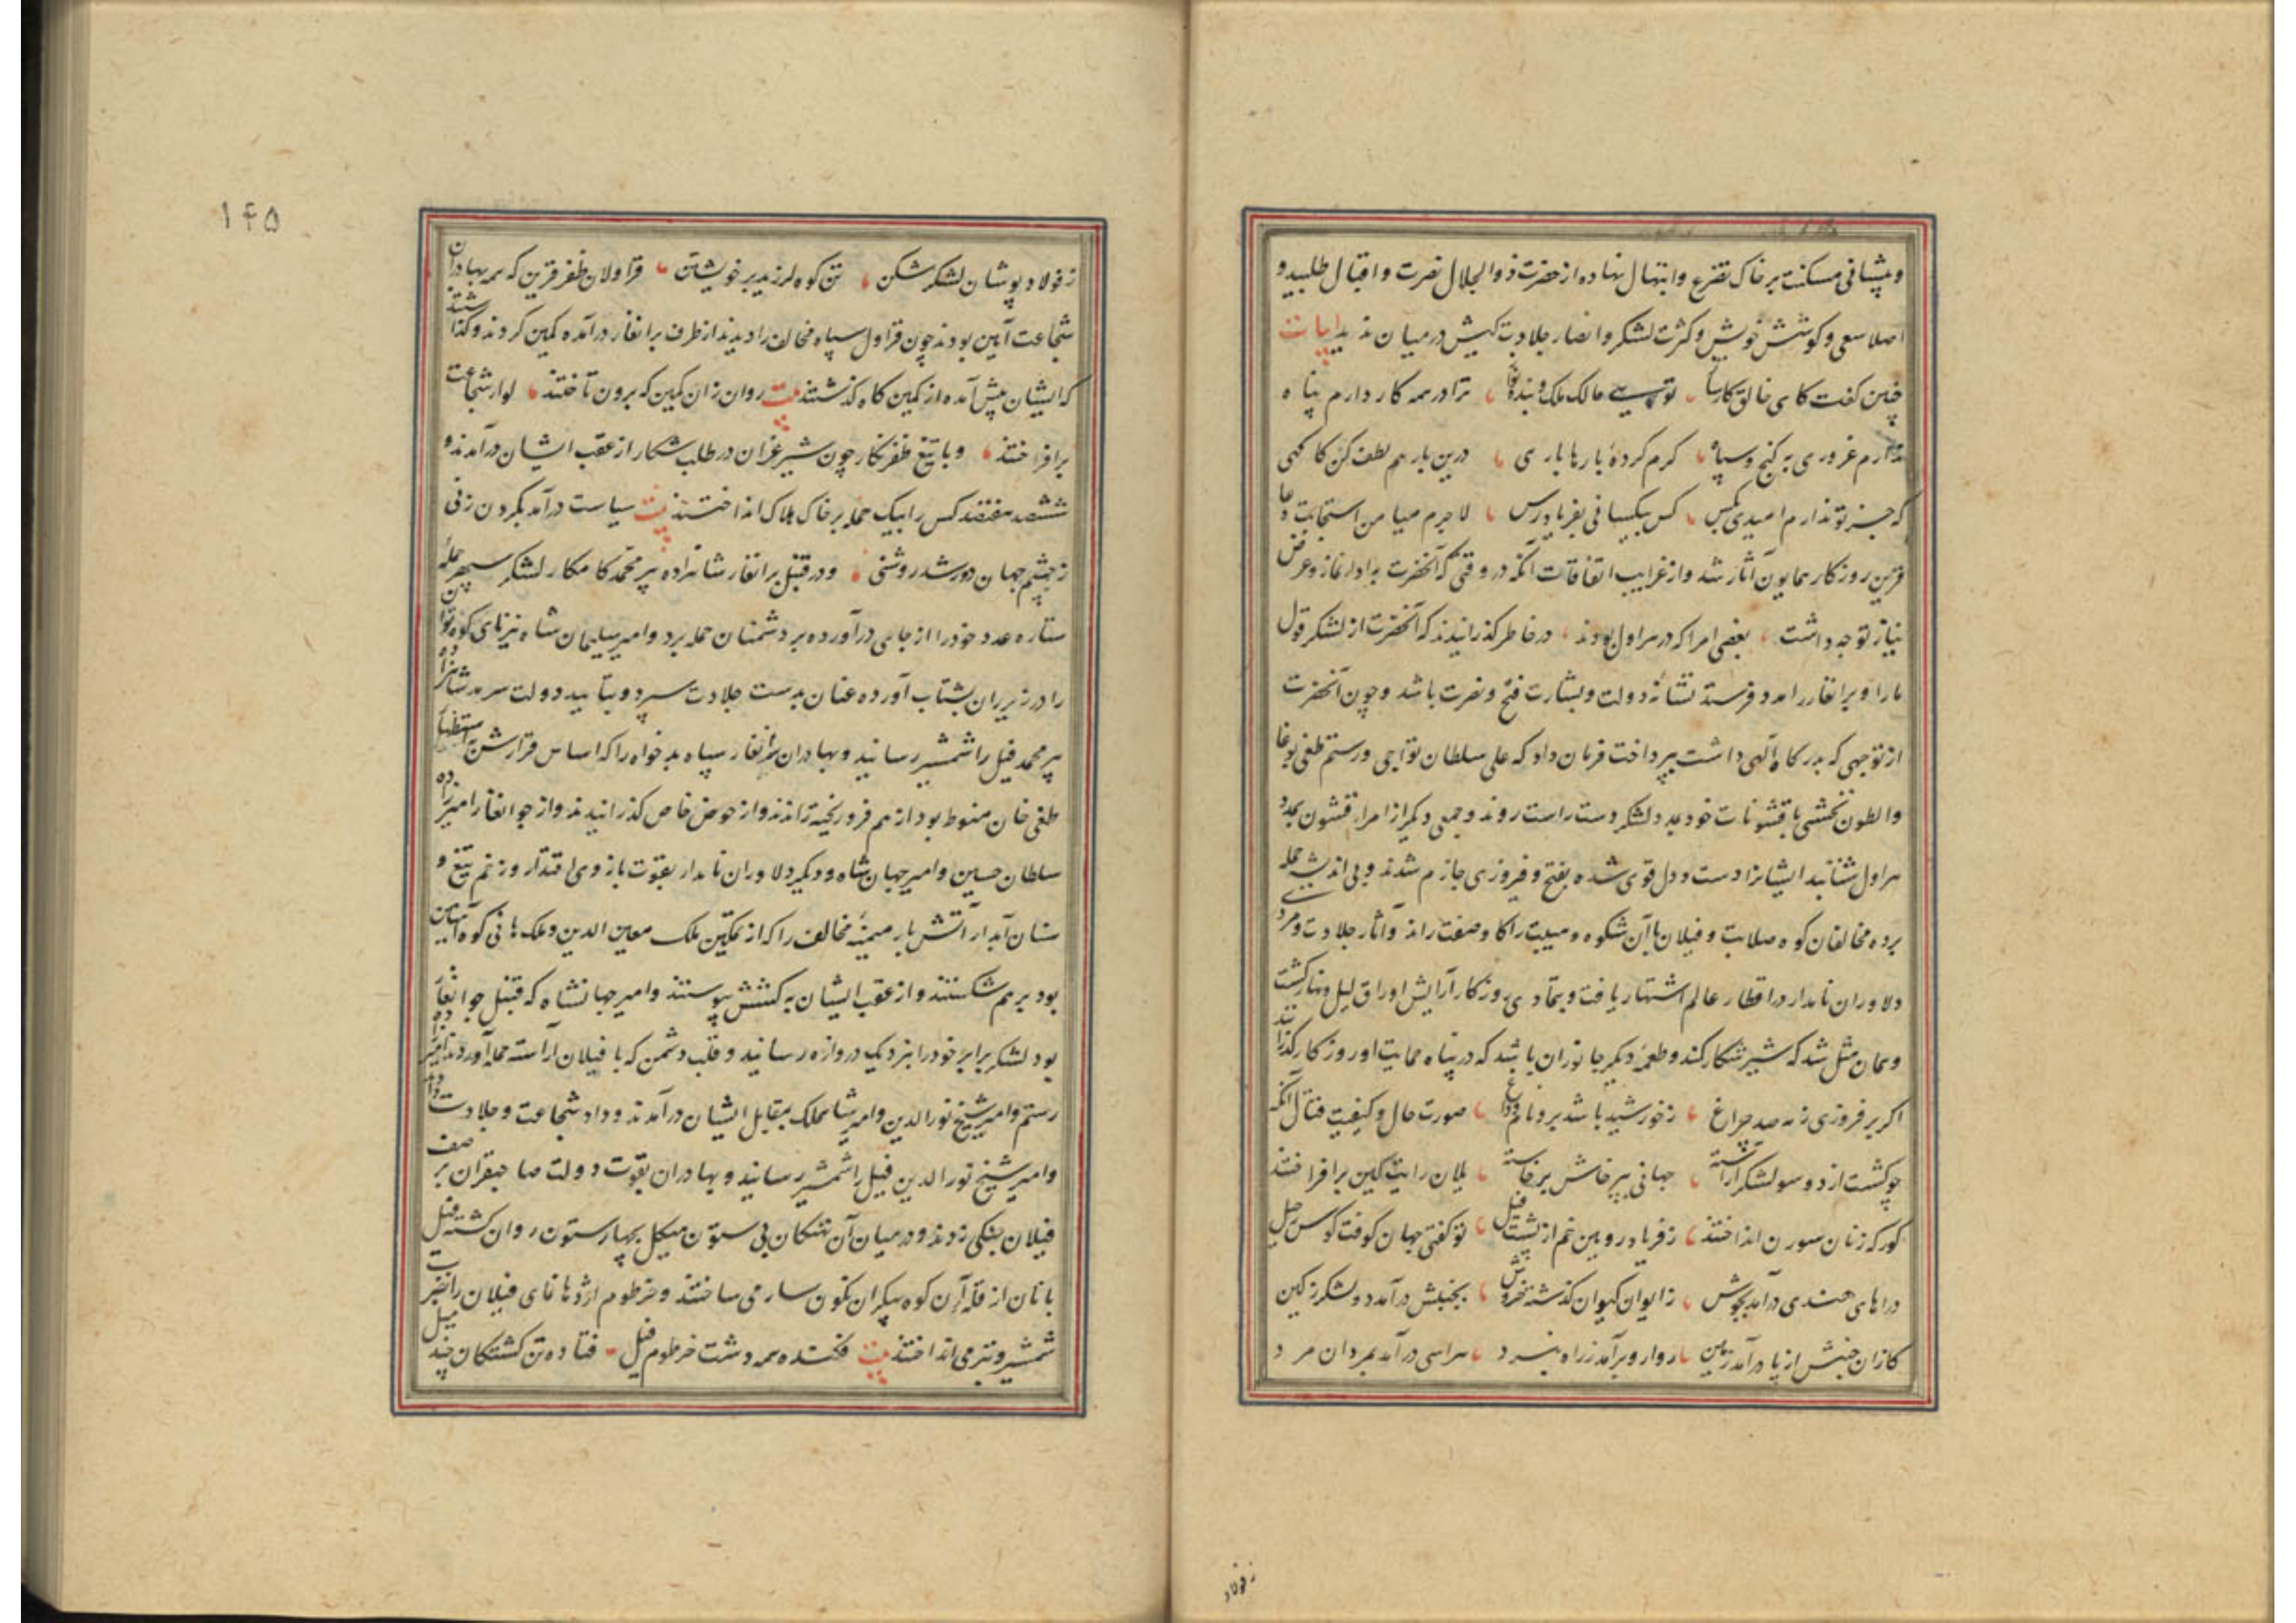 و پیشانی مسکنت بر خاک تضرع و ابتهال نهاده از حضرت ذو الجلال نصرت و اقبال طلبید و
اصلا سعی و کوشش خویش و کثرت لشکر و انصار جلادت کیش در میان ندید ابیات
چنین کفت کای خالق کارساز تویی مالک ملک و بنده ترا در همه کار دارم پناه
ندارم غروری به کنج و سپاه کرم کردهٔ بارها یاری درین بار هم لطف کن کا کهی
که جز تو ندارم امیدی بکس کس بیکسانی بفریاد رس لاجرم میامن استجابت دعا
قرین روزکار همایون آثار شد و از غرایب اتفاقات آنکه در وقتی که آنحضرت به ادا نماز و عرض
نیاز توجه داشت بعضی امرا که در هراول بودند در خاطر کذرانیدند که آنحضرت از لشکر قول
ما را و برانغار را مدد فرستد نشانهٔ دولت و بشارت فتح و نصرت باشد و چون آنحضرت
از توجهی که بدرکاه آلهی داشت بپرداخت فرمان داد که علی سلطان تواجی و رستم طغی بوغا
و الطون بخشی با قشونات خود بمدد لشکر دست راست روند و جمعی دیکر از امرا قشون بمدد
هراول شتابند ایشانرا دست و دل قوی شده بفتح و فیروزی جازم شدند و بی اندیشه حمله
برده مخالفان کوه صلابت و فیلان با آن شکوه و مهیبت را کا و صفت راند و آثار جلادت و مرد
دلاوران نامدار در اقطار عالم اشتهار یافت و بتمادی روزکار آرایش اوراق لیل و نهار کشت
و همان مثل شد که شیر شکار کند و طعمه دیکر جانوران باشد که در پناه حمایت او روزکار کذرانند
اکر بر فروزی ز مه صد چراغ ز خورشید باشد برو نام وداغ صورت حال و کیفیت قتال آنکه
چو کشت از دو سو لشکر آراسته جهانی بپرخاش برخاسته یلان رایت کین بر افراختند
کورکه زنان سورن انداختند ز فریاد رویین خم از پشت فیل تو کفتی جهان کوفت کوس رحیل
دراهای هندی در آمد بجوش ز ایوان کیوان کذشته خروش بجنبش در آمد دو لشکر ز کین
کزان جنبش از پا در آمد زمین روارو بر آمد ز راه نبرد هراسی در آمد بمردان مرد
ز فولاد
۱۴۵
ز فولاد پوشان لشکر شکن تن کوه لرزید بر خویشتن قراولان ظفر قرین که همه بهادران
شجاعت آیین بودند چون قراول سپاه مخالف را دیدند از طرف برانغار درآمده کمین کردند و کذاشتند
که ایشان پیش آمده از کمین کاه کذشتند بیت روان زان کمین که برون تاختند لوا شجاعت
برافراختند و با تیغ ظفر نکار چون شیر غران در طلب شکار از عقب ایشان درآمدند و
ششصد هفتصد کس را بیک حمله بر خاک هلاک انداختند بیت سیاست درآمد بکردن زنی
ز چشم جهان دور شد روشنی و در قنبل برانغار شاهزاده پیر محمد کامکار لشکر سپهر حمله
ستاره عدد خود را از جای درآورده بر دشمنان حمله برد و امیر سلیمان شاه نیز بای کوه توان
را در زیر ران بشتاب آورده عنان بدست جلادت سپرد و بتأیید دولت سرمد شاهزاده
پیر محمد فیل را شمشیر رسانید و بهادران برانغار سپاه بدخواه را که اساس قرارش باستظهار
طغی خان منوط بود از هم فرو ریخته راندند و از حوض خاص کذرانیدند و از جوانغار امیرزاده
سلطان حسین و امیر جهان شاه و دیکر دلاوران نامدار بقوت بازوی اقتدار و زخم تیغ و
سنان آبدار آتش بار میمنه مخالف را که از تمکین ملک معین الدین و ملک هانی کوه آیین
بود بر هم شکستند و از عقب ایشان به کشش پیوستند و امیر جهانشاه که قنبل جوانغار
بود لشکر برابر خود را بنزدیک دروازه رسانید و قلب دشمن که با فیلان آراسته حمله آوردند امیرزاده
رستم و امیر شیخ نور الدین و امیر شاهملک بمقابل ایشان درآمدند و داد شجاعت و جلادت دادند
و امیر شیخ نور الدین فیل را شمشیر رسانید و بهادران بقوت دولت صاحبقران بر صف
فیلان یفکی زدند و در میان آن تنکان بی ستون هیکل بچهار ستون روان کشته فیل
بانان از قله آن کوه پیکران نکون سار می ساختند و خرطوم اژدهانمای فیلان را بضرب
شمشیر و تبر می انداختند بیت فکنده همه دشت خرطوم فیل فتاده تن کشتکان چند میل